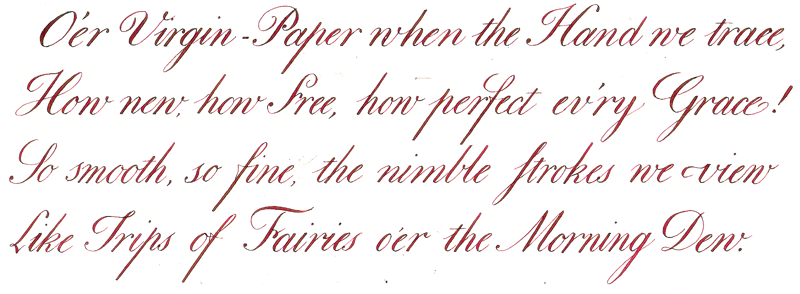 O'er Virgin-Paper when the Hand we trace,
How new, how Free, how perfect ev'ry Grace!
So smooth, so fine, the nimble ſtrokes we view
Like Trips of Fairies o'er the Morning Dew.